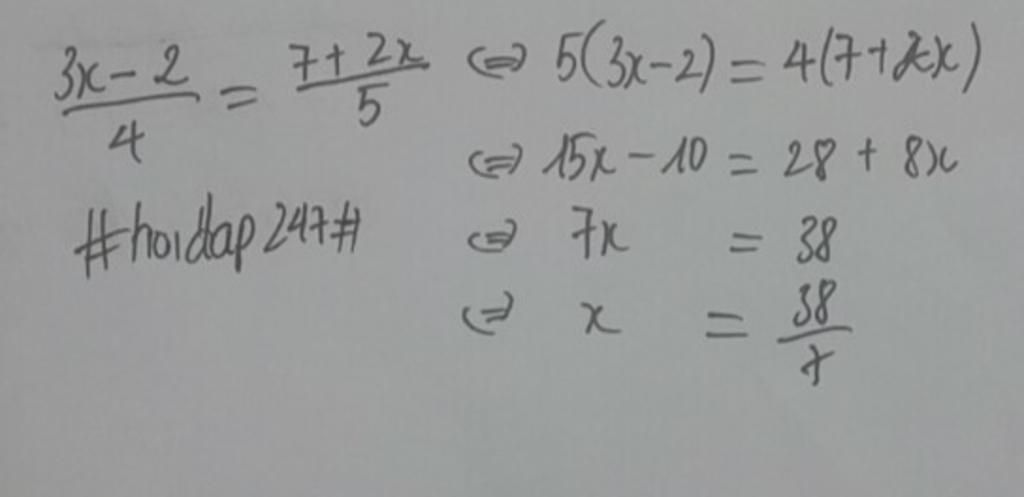 3x-2/4 = 7+2x/5 ⇔ 5(3x-2) = 4(7+2x)
⇔ 15x-10 = 28+8x
#hoidap247# ⇔ 7x = 38
⇔ x = 38/7